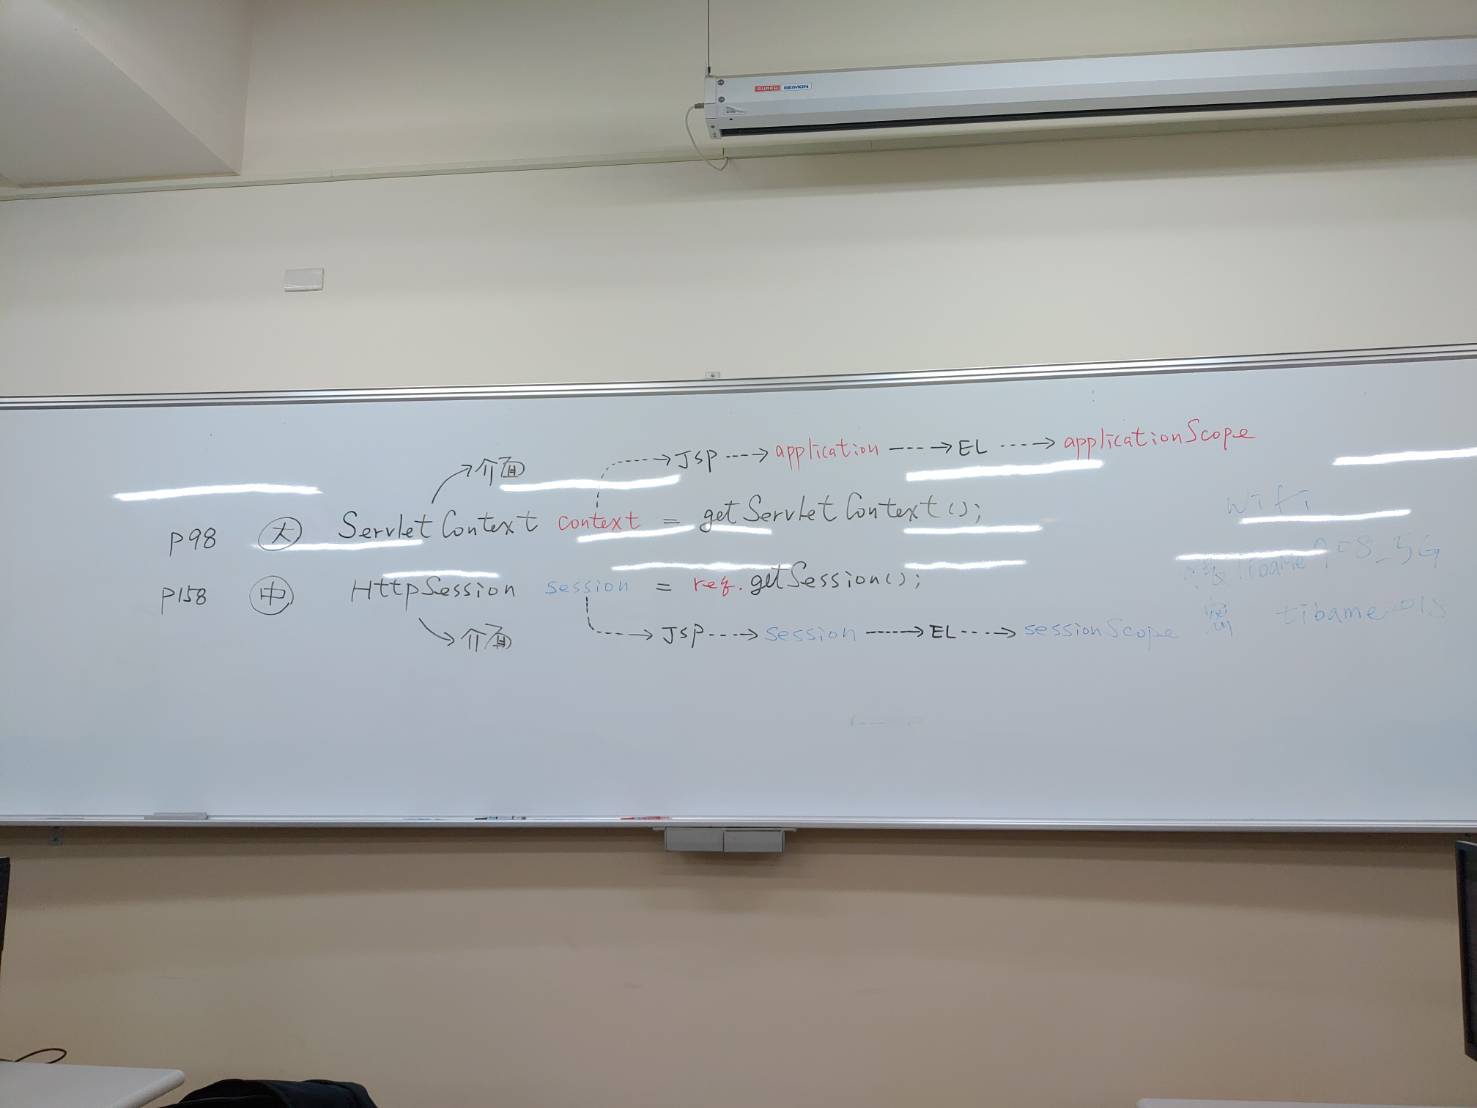 介面 JSP application EL applicationScope
P98 大 ServletContext context = getServletContext();
P158 中 HttpSession session = req.getSession();
介面 JSP session EL sessionScope
wifi